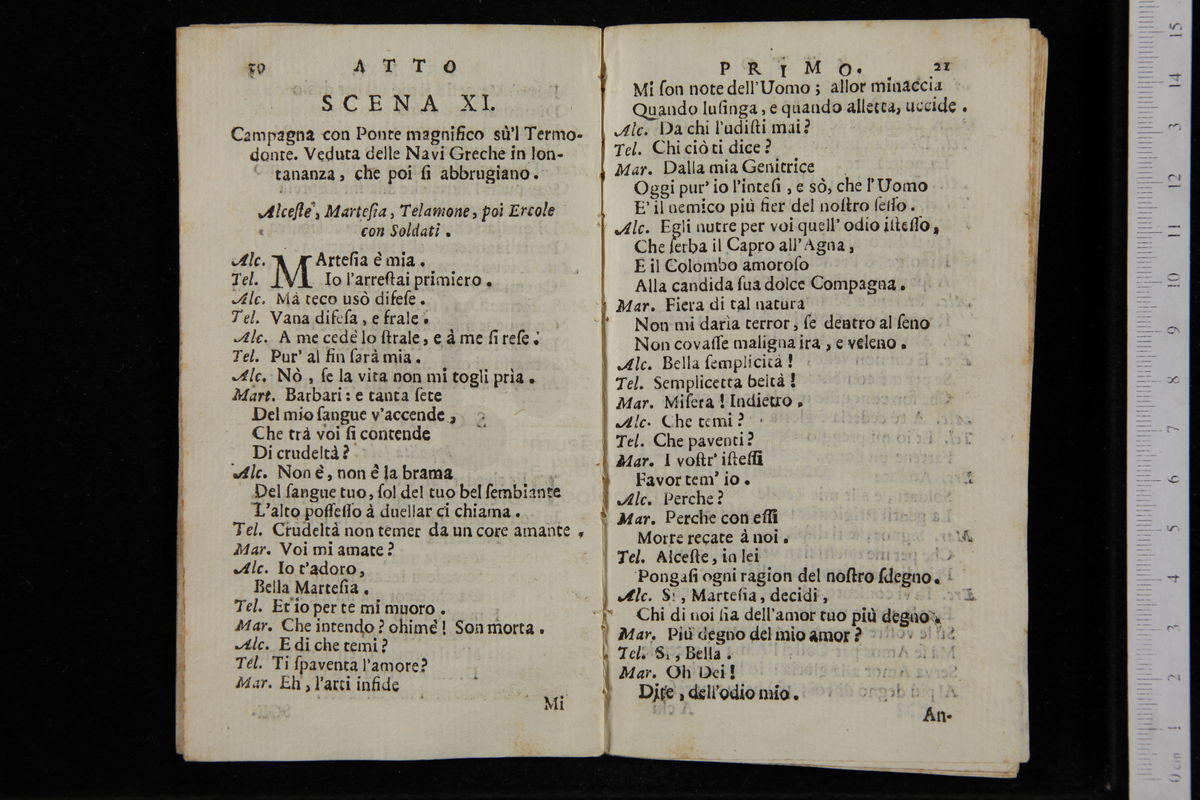 20 ATTO
SCENA XI.
Campagna con Ponte magnifico sù'l Termo-
donte. Veduta delle Navi Greche in lon-
tananza, che poi ſi abbrugiano.
Alceſte, Marteſia, Telamone, poi Ercole
con Soldati.
Alc. MArteſia è mia.
Tel. Io l'arreſtai primiero.
Alc. Mà teco usò difeſe.
Tel. Vana difeſa, e frale.
Alc. A me cedè lo ſtrale, e à me ſi reſe.
Tel. Pur' al fin ſarà mia.
Alc. Nò, ſe la vita non mi togli prìa.
Mart. Barbari: e tanta ſete
Del mio ſangue v'accende,
Che trà voi ſi contende
Di crudeltà?
Alc. Non è, non è la brama
Del ſangue tuo, ſol del tuo bel ſembiante
L'alto poſſeſſo à duellar ci chiama.
Tel. Crudeltà non temer da un core amante.
Mar. Voi mi amate?
Alc. Io t'adoro,
Bella Marteſia.
Tel. Et io per te mi muoro.
Mar. Che intendo? ohimè! Son morta.
Alc. E di che temi?
Tel. Ti ſpaventa l'amore?
Mar. Eh, l'arti infide
Mi
PRIMO. 21
Mi ſon note dell'Uomo; allor minaccia
Quando luſinga, e quando alletta, uccide.
Alc. Da chi l'udiſti mai?
Tel. Chi ciò ti dice?
Mar. Dalla mia Genitrice
Oggi pur' io l'inteſi, e sò, che l'Uomo
E' il nemico più fier del noſtro ſeſſo.
Alc. Egli nutre per voi quell' odio iſteſſo,
Che ſerba il Capro all'Agna,
E il Colombo amoroſo
Alla candida ſua dolce Compagna.
Mar. Fiera di tal natura
Non mi darìa terror, ſe dentro al ſeno
Non covaſſe maligna ira, e veleno.
Alc. Bella ſemplicità!
Tel. Semplicetta beltà!
Mar. Miſera! Indietro.
Alc. Che temi?
Tel. Che paventi?
Mar. I voſtr' iſteſſi
Favor tem' io.
Alc. Perche?
Mar. Perche con eſſi
Morte recate à noi.
Tel. Alceſte, in lei
Pongaſi ogni ragion del noſtro ſdegno.
Alc. Sì, Marteſia, decidi,
Chi di noi ſia dell'amor tuo più degno.
Mar. Più degno del mio amor?
Tel. Sì, Bella.
Mar. Oh Dei!
Dite, dell'odio mio.
An-